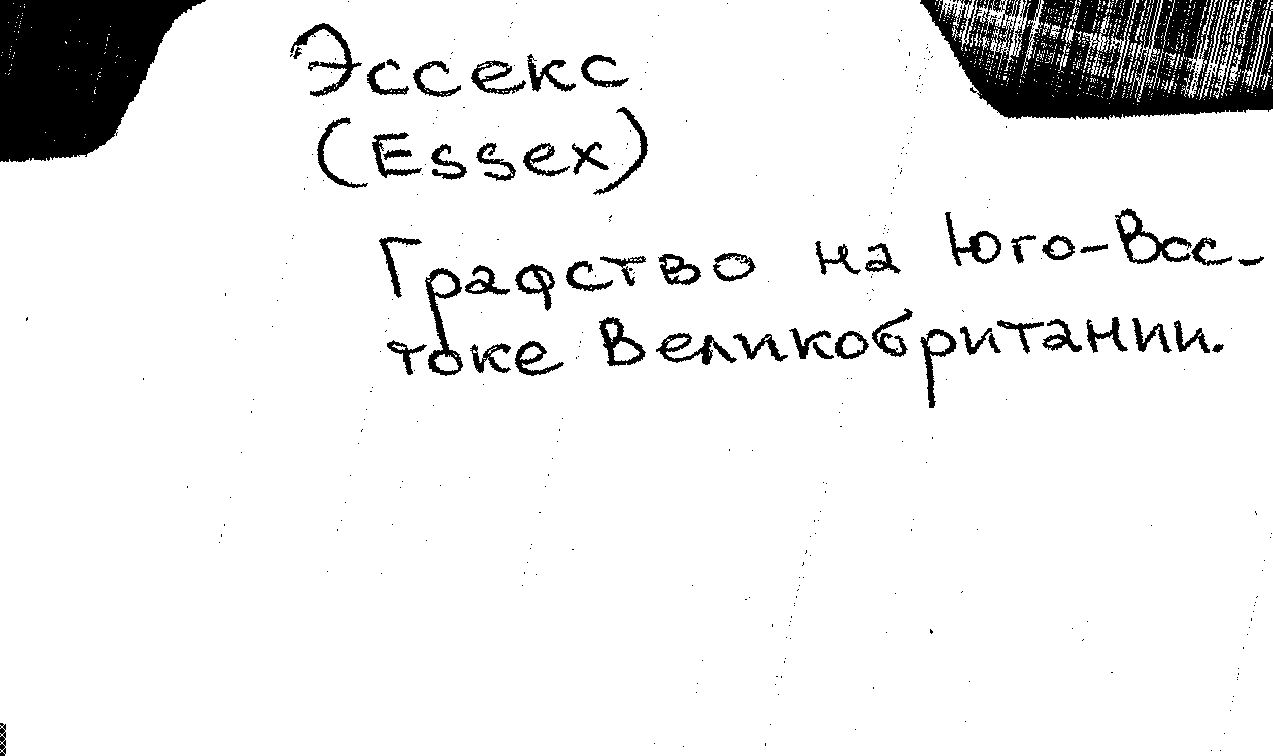 Эссекс
(Essex)
Графство на Юго-Вос-
токе Великобритании.